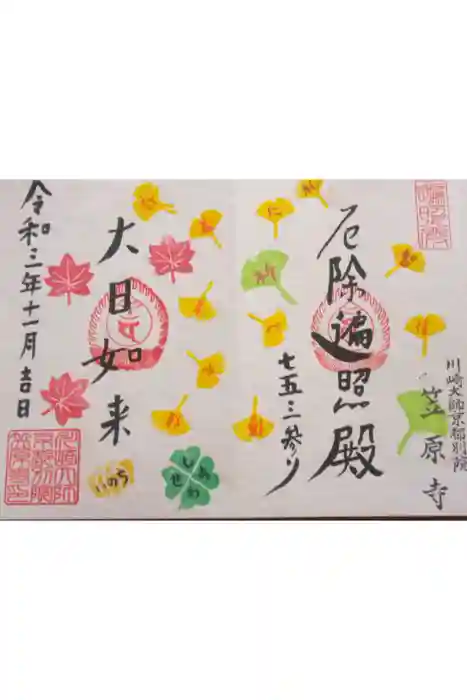 厄除遍照殿
七五三参り
川崎大師京都別院
笠原寺
大日如来
令和三年十一月吉日
いのち
しあ
わせ